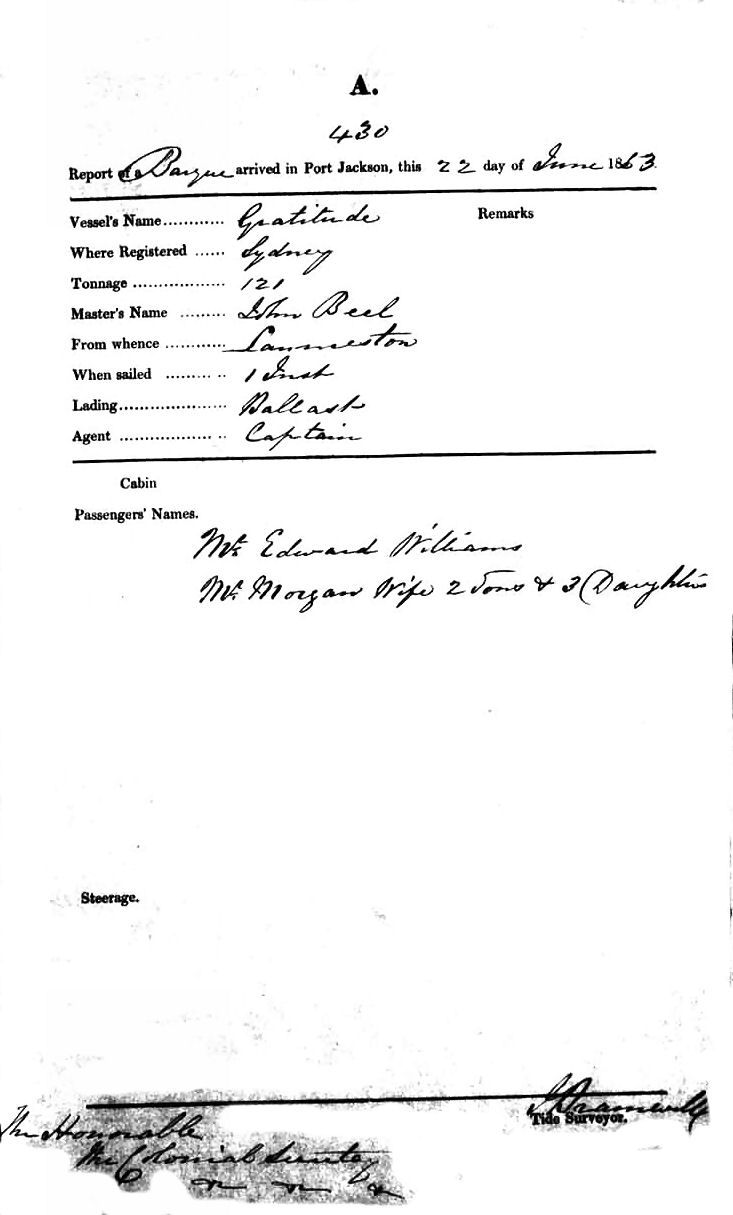 A.
430
Report of a Barque arrived in Port Jackson, this 22 day of June 1863.
Vessel's Name............ Gratitude Remarks
Where Registered ...... Sydney
Tonnage .................. 121
Master's Name ......... John Beel
From whence ............ Launceston
When sailed ......... .. 1 Inst
Lading..................... Ballast
Agent .................. .. Captain
Cabin
Passengers' Names.
Mr. Edward Williams
Mr. Morgan Wife 2 Sons & 3 Daughters
Steerage.
Tide Surveyor.
The Honorable
The Colonial Secretary